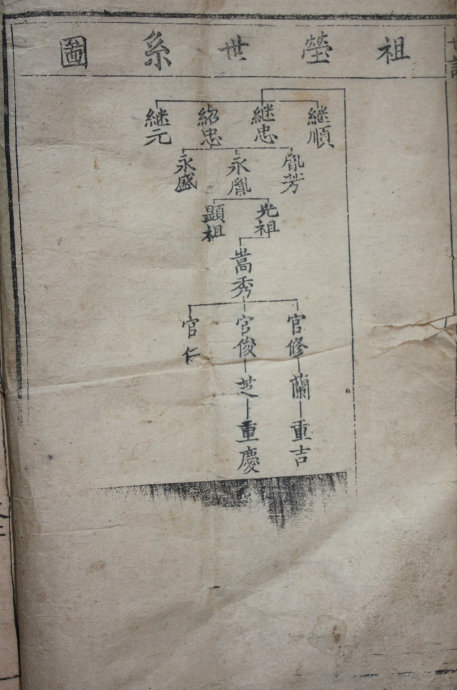 祖塋世系圖
継順 継忠 紹忠 継元
胤芳 永胤 永盛
光祖 顕祖
嵩秀
官修 官俊 官仁
蘭 芝
重吉 重慶